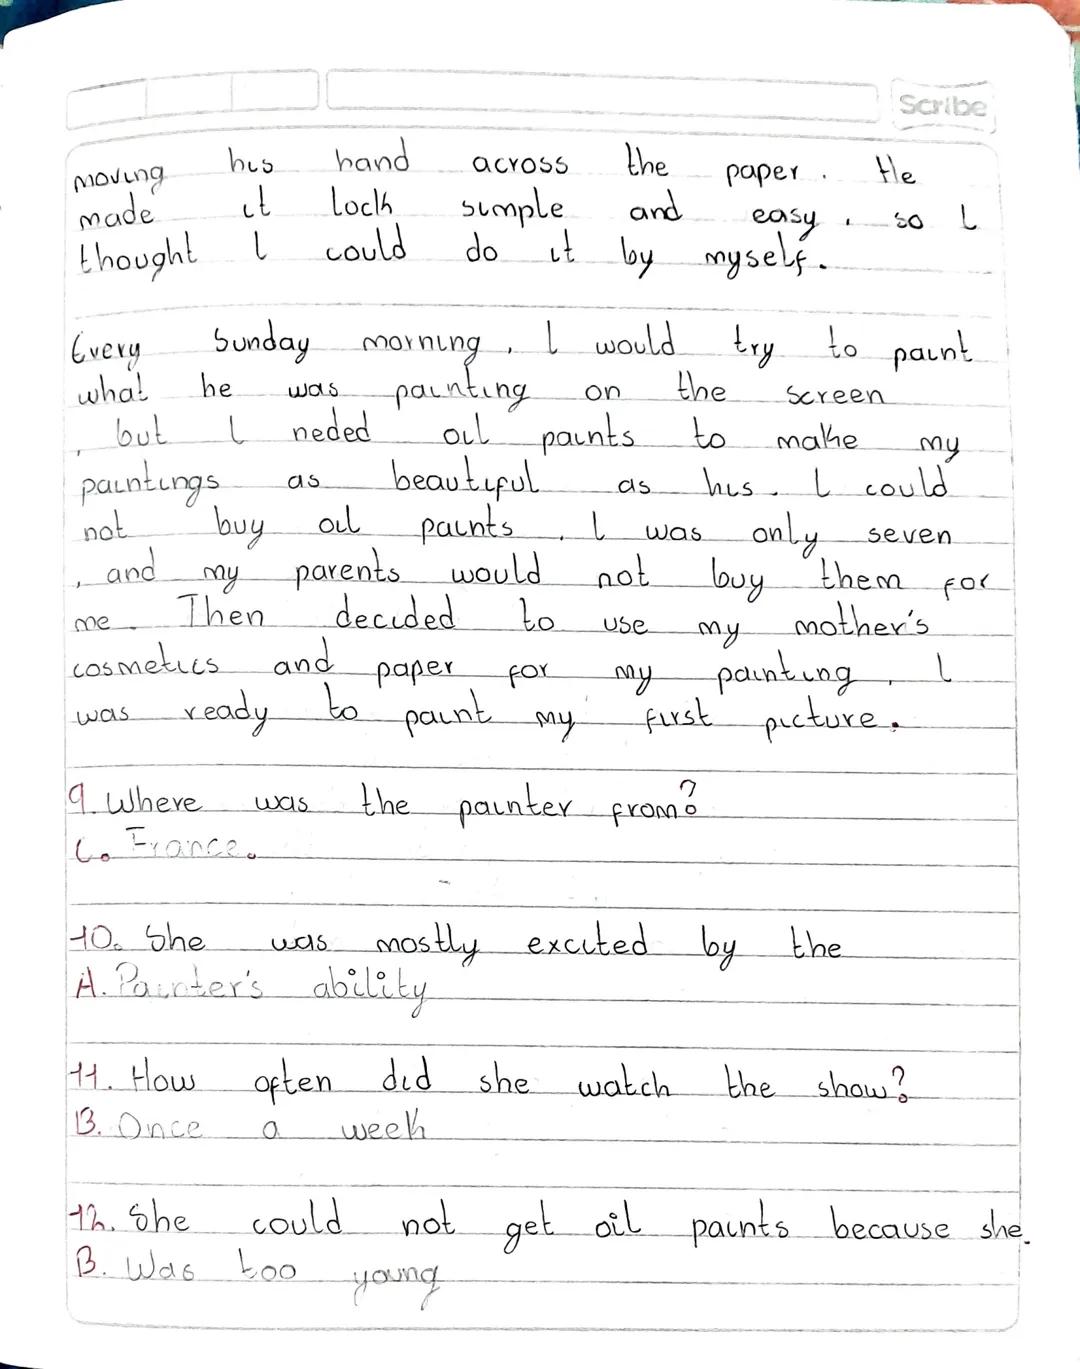 Scribe
moving his hand across the paper. He
made it lock simple and easy, so I
thought I could do it by myself.
Every Sunday morning, I would try to paint
what he was painting on the screen
, but I neded oil paints to make my
paintings as beautiful as his. I could
not buy oil paints. I was only seven
, and my parents would not buy them for
me. Then decided to use my mother's
cosmetics and paper for my painting, I
was ready to paint my first picture.
9. Where was the painter from?
C. France.
10. She was mostly excited by the
A. Painter's ability
11. How often did she watch the show?
B. Once a week
12. She could not get oil paints because she.
B. Was too young